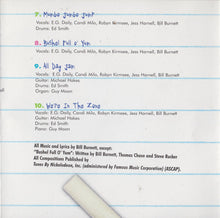 7. Mondo Jondo Jon?
Vocals: E.G. Daily, Candi Milo, Robyn Kirmsse, Jess Harnell, Bill Burnett
Drums: Ed Smith
8. Bushel Full O' Yum
Vocals: E.G. Daily, Candi Milo, Robyn Kirmsse, Jess Harnell, Bill Burnett
9. All Day Jon
Vocals: E.G. Daily, Candi Milo, Robyn Kirmsse, Jess Harnell, Bill Burnett
Guitar: Michael Hakes
Drums: Ed Smith
Organ: Guy Moon
10. We're In The Zone
Vocals: E.G. Daily, Candi Milo, Robyn Kirmsse, Jess Harnell, Bill Burnett
Guitar: Michael Hakes
Drums: Ed Smith
Piano: Guy Moon
All Music and Lyrics by Bill Burnett, except:
"Bushel Full O' Yum": Written by Bill Burnett, Thomas Chase and Steve Rucker
All Compositions Published by
Tunes By Nickelodeon, Inc. (administered by Famous Music Corporation) (ASCAP).